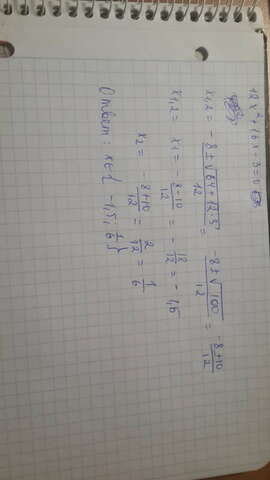 12x²+16x-3=0
x1,2 = -8±√64+12·3 / 12 = -8±√100 / 12 = 8±10 / 12
x1,2 = x1 = - 8-10 / 12 = - 18 / 12 = -1,5
x2 = - 8+10 / 12 = 2 / 12 = 1 / 6
Ответ: x∈{ -1,5; 1/6 }